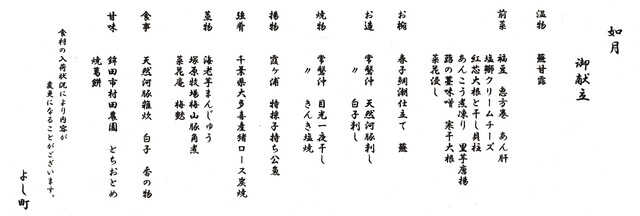 如月
御献立
温物 蕪甘露
前菜 福豆 恵方巻 あん肝
塩鰤クリームチーズ
紅芯大根と干し貝柱
あんこう煮凍り 里芋唐揚
蕗の薹味噌 寒干大根
菜花優し
お椀 春子鯛潮仕立て 蕪
お造 常磐沖 天然河豚刺し
〃 白子刺し
焼物 常磐沖 目光一夜干し
〃 きんき塩焼
揚物 霞ヶ浦 特採子持ち公魚
強肴 千葉県大多喜産猪ロース炭焼
蒸物 海老芋まんじゅう
塚原牧場梅山豚角煮
菜花庵 梅麩
食事 天然河豚雑炊 白子 香の物
甘味 鉾田市村田農園 とちおとめ
焼葛餅
食材の入荷状況により内容が
変更になることがございます。
よし町